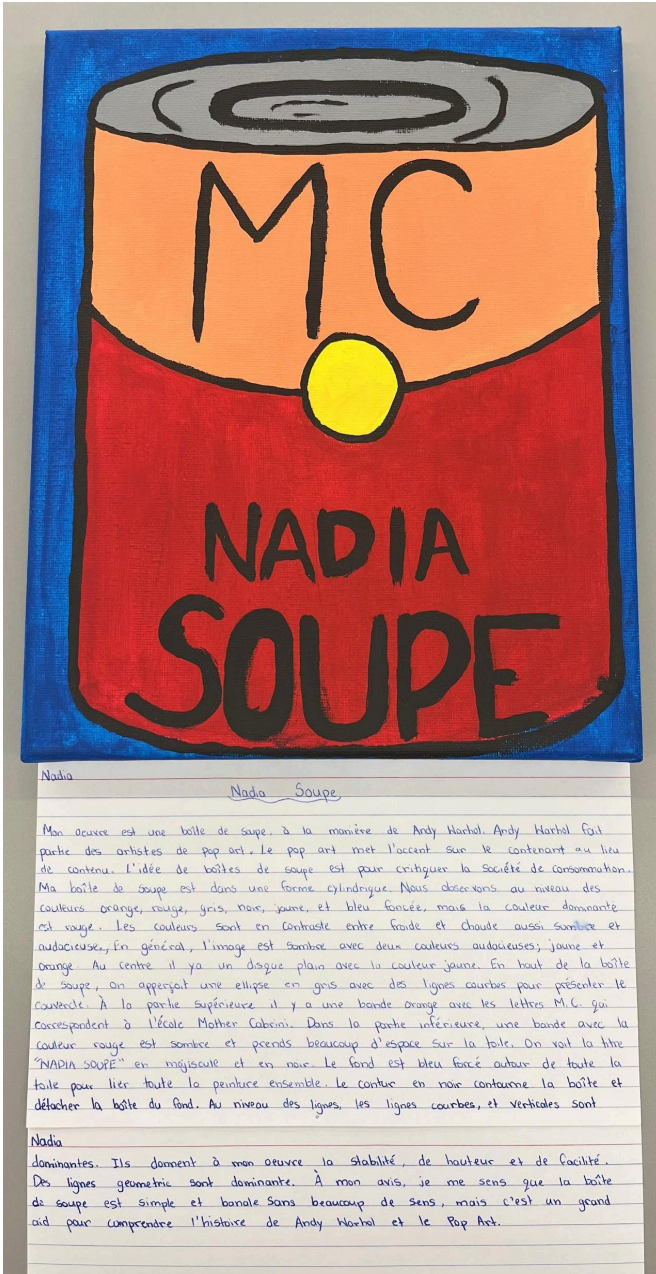 MC
NADIA
SOUPE
Nadia
Nadia Soupe
Mon oeuvre est une boîte de soupe, à la manière de Andy Warhol. Andy Warhol fait
partie des artistes de pop art. Le pop art met l'accent sur le contenant au lieu
de contenu. L'idée de boîtes de soupe est pour critiquer la société de consommation.
Ma boîte de soupe est dans une forme cylindrique. Nous observons au niveau des
couleurs orange, rouge, gris, noir, jaune, et bleu foncée, mais la couleur dominante
est rouge. Les couleurs sont en contraste entre froide et chaude aussi sombre et
audacieuse., En général, l'image est sombre avec deux couleurs audacieuses; jaune et
orange Au centre il ya un disque plain avec la couleur jaune. En haut de la boîte
de soupe, on apperçoit une ellipse en gris avec des lignes courbes pour présenter le
couvercle. À la partie supérieure il y a une bande orange avec les lettres M.C. qui
correspondent à l'école Mother Cabrini. Dans la partie inférieure, une bande avec la
couleur rouge est sombre et prends beaucoup d'espace sur la toile. On voit la titre
"NADIA SOUPE" en majiscule et en noir. Le fond est bleu forcé autour de toute la
toile pour lier toute la peinture ensemble. Le contur en noir contourne la boîte et
détacher la boîte du fond. Au niveau des lignes, les lignes courbes, et verticales sont
Nadia
dominantes. Ils donnent à mon oeuvre la stabilité, de hauteur et de facilité.
Des lignes geometric sont dominante. À mon avis, je me sens que la boîte
de soupe est simple et banale sans beaucoup de sens, mais c'est un grand
aid pour comprendre l'histoire de Andy Warhol et le Pop Art.